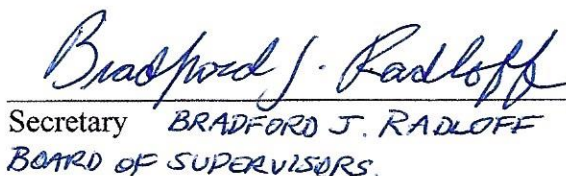 Bradford J. Radloff
Secretary BRADFORD J. RADLOFF
BOARD OF SUPERVISORS.